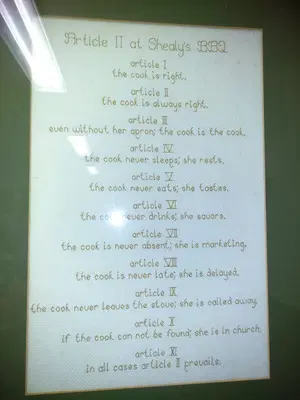 Article II at Shealy's BBQ
article I
the cook is right.
article II
the cook is always right.
article III
even without her apron; the cook is the cook.
article IV
the cook never sleeps; she rests.
article V
the cook never eats; she tastes.
article VI
the cook never drinks; she savors.
article VII
the cook is never absent; she is marketing.
article VIII
the cook is never late; she is delayed.
article IX
the cook never leaves the stove; she is called away.
article X
if the cook can not be found; she is in church.
article XI
in all cases article II prevails.